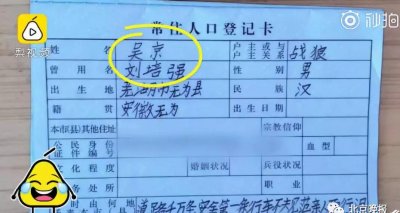 秒拍
梨视频
常住人口登记卡
姓名 吴京 户主或与户主关系 战狼
曾用名 刘培强 性别 男
出生地 芜湖市无为县 民族 汉
籍贯 安徽无为
本市(县)其他住址 宗教信仰
公民身份证件编号 血型
文化程度 婚姻状况 兵役状况
务处所 职业
道路千万条 安全第一条 行车不规范 亲人
北京晚报